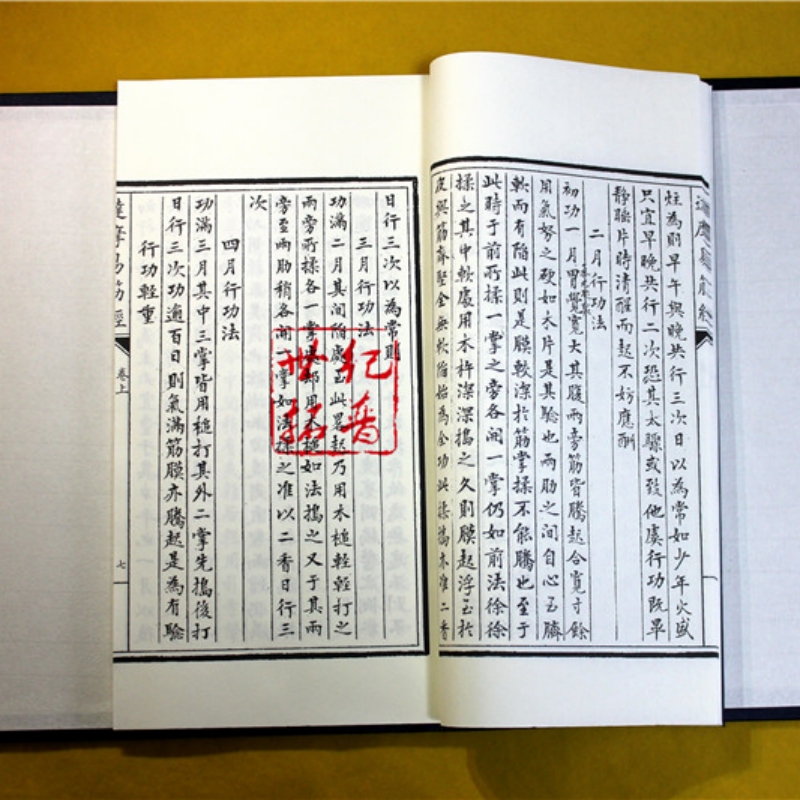 炷為則早午與晚共行三次日以為常如少年火盛
只宜早晚共行二次恐其太驟或致他虞行功既畢
靜睡片時清醒而起不妨應酬
二月行功法
初功一月胃覺寬大其腹兩旁筋皆騰起合寬寸餘
用氣努之硬如木片是其驗也兩肋之間自心至臍
軟而有陷此則是膜較深於筋掌揉不能騰也至于
此時于前所揉一掌之旁各開一掌仍如前法徐徐
揉之其中軟處用木杵深深搗之久則膜起浮至於
皮與筋齊堅全無軟陷始為全功此揉搗亦准二香
日行三次以為常則
三月行功法
功滿二月其間陷處至此畧起乃用木槌輕輕打之
兩旁所揉各一掌處却用木槌如法搗之又于其兩
旁至兩肋稍各開一掌如法揉之准以二香日行三
次
四月行功法
功滿三月其中三掌皆用槌打其外二掌先搗後打
日行三次功逾百日則氣滿筋膜亦騰起是為有驗
行功輕重
達摩易筋經
卷上
七
世紀